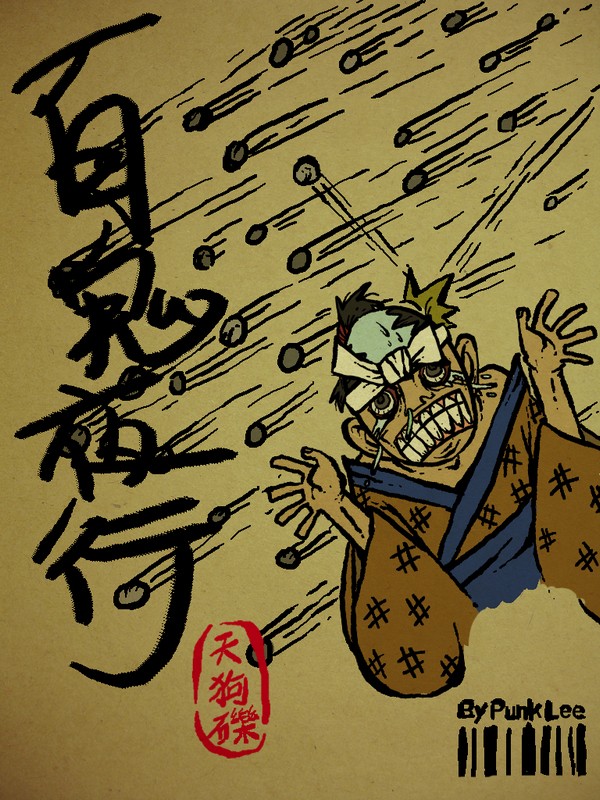 百鬼夜行
天狗礫
By Punk Lee